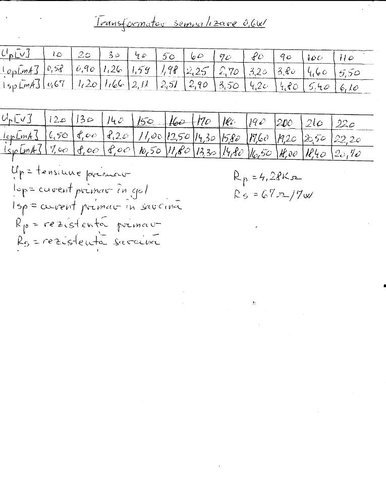 Transformator semnalizare 0,6W
Up[V] 10 20 30 40 50 60 70 80 90 100 110
Iop[mA] 0,58 0,90 1,26 1,59 1,98 2,25 2,70 3,20 3,80 4,60 5,50
Isp[mA] 0,67 1,20 1,66 2,11 2,51 2,90 3,50 4,20 4,80 5,40 6,10
Up[V] 120 130 140 150 160 170 180 190 200 210 220
Iop[mA] 6,50 8,00 8,20 11,00 12,50 14,30 15,80 17,60 19,20 20,50 22,20
Isp[mA] 7,00 8,00 8,00 10,50 11,80 13,30 14,80 16,50 18,00 18,40 20,70
Up = tensiune primar
Rp = 4,28KΩ
Iop = curent primar în gol
Rs = 67Ω/7W
Isp = curent primar în sarcină
Rp = rezistență primar
Rs = rezistență sarcină